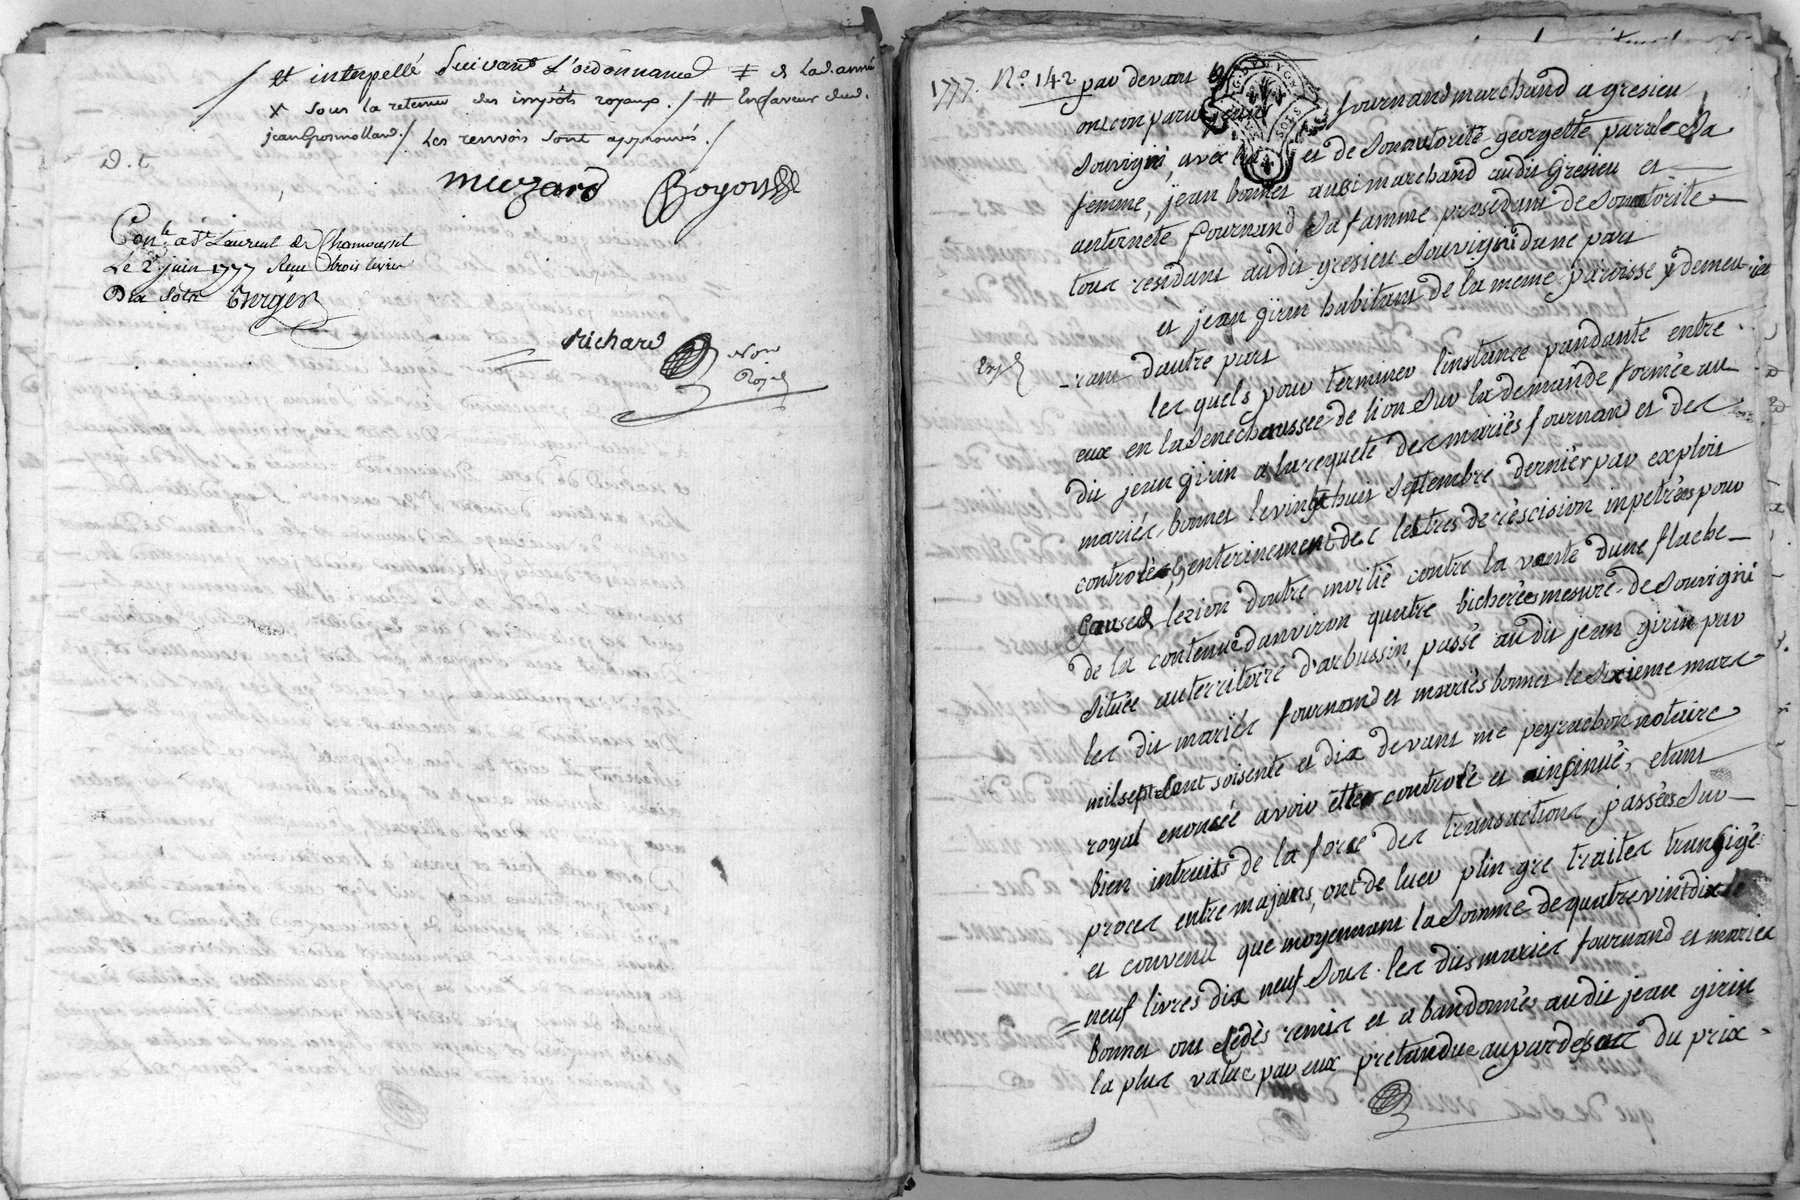 et interpellé suivant l'ordonnance ≠ & ladanné
x sous la retenue des impots royaux ./ # En faveur dud.
jean Gromolland ./ Les renvois sont approuvés ./
D. t.
muzard Boyoud
Con.lé a St Laurent de Chamousset
Le 2 juin 1777 Reçu trois livres
Dix sols
Richard
Nore
Royal
1777. No. 142
par devant
fournand marchand a gresieu
ont conparu jean
souvigni, avec lui et de son autorité georgette purale sa
femme, jean bonnet aussi marchand audit Gresieu et
anternete fournand sa famme prosedant de son autorité
tous residant audit gresieu souvigni dune part
et jean girin habitant de la meme paroisse y demeu
rant dautre part
les quels pour terminer linstance pandante entre
eux en la senechaussée de lion sur la demande formée au
dit jean girin a la requete des mariés fournand et des
mariés bonnet le vingt huit septembre dernier par exploit
controlé, enterinement des lettres de réscision inpetrées pour
cause lezion doutre moitié contre la vante dune flache
de la contenue danviron quatre bicherées mesure de souvigni
située au territoire d'arbussin, passé au dit jean girin par
les dit mariés fournand et mariés bonnet le sixieme mars
mil sept cent soisente et dix devant me peyrachon notaire
royal enoncée avoir été controlé et insinué, etant
bien intruits de la force des transactions passées sur
proces entre majeurs, ont de luer plin gre traites transigé
et convenu que moyennant la somme de quatre vint dix
neuf livres dix neuf sous les dits mariés fournand et mariés
bonnet ont sédés remis et abandonnés audit jean girin
la plus value par eux pretandue aupardesus du prix